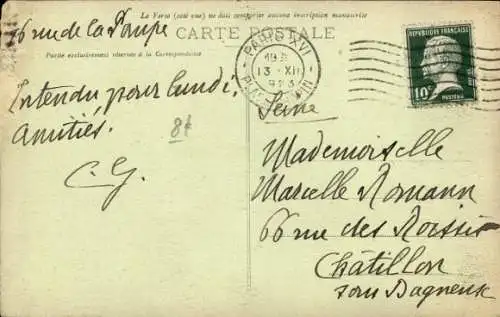 Le Verso (côté vue) ne doit comporter aucune inscription manuscrite
CARTE POSTALE
Partie exclusivement réservée à la Correspondance
66 rue de la Pompe
Entendu pour lundi,
Amitiés.
C. G.
8f
PARIS XVI
13 · XII
1923
REPUBLIQUE FRANÇAISE
10c
PASTEUR
Seine
Mademoiselle
Marcelle Romann
66 rue des
Châtillon
sous Bagneux